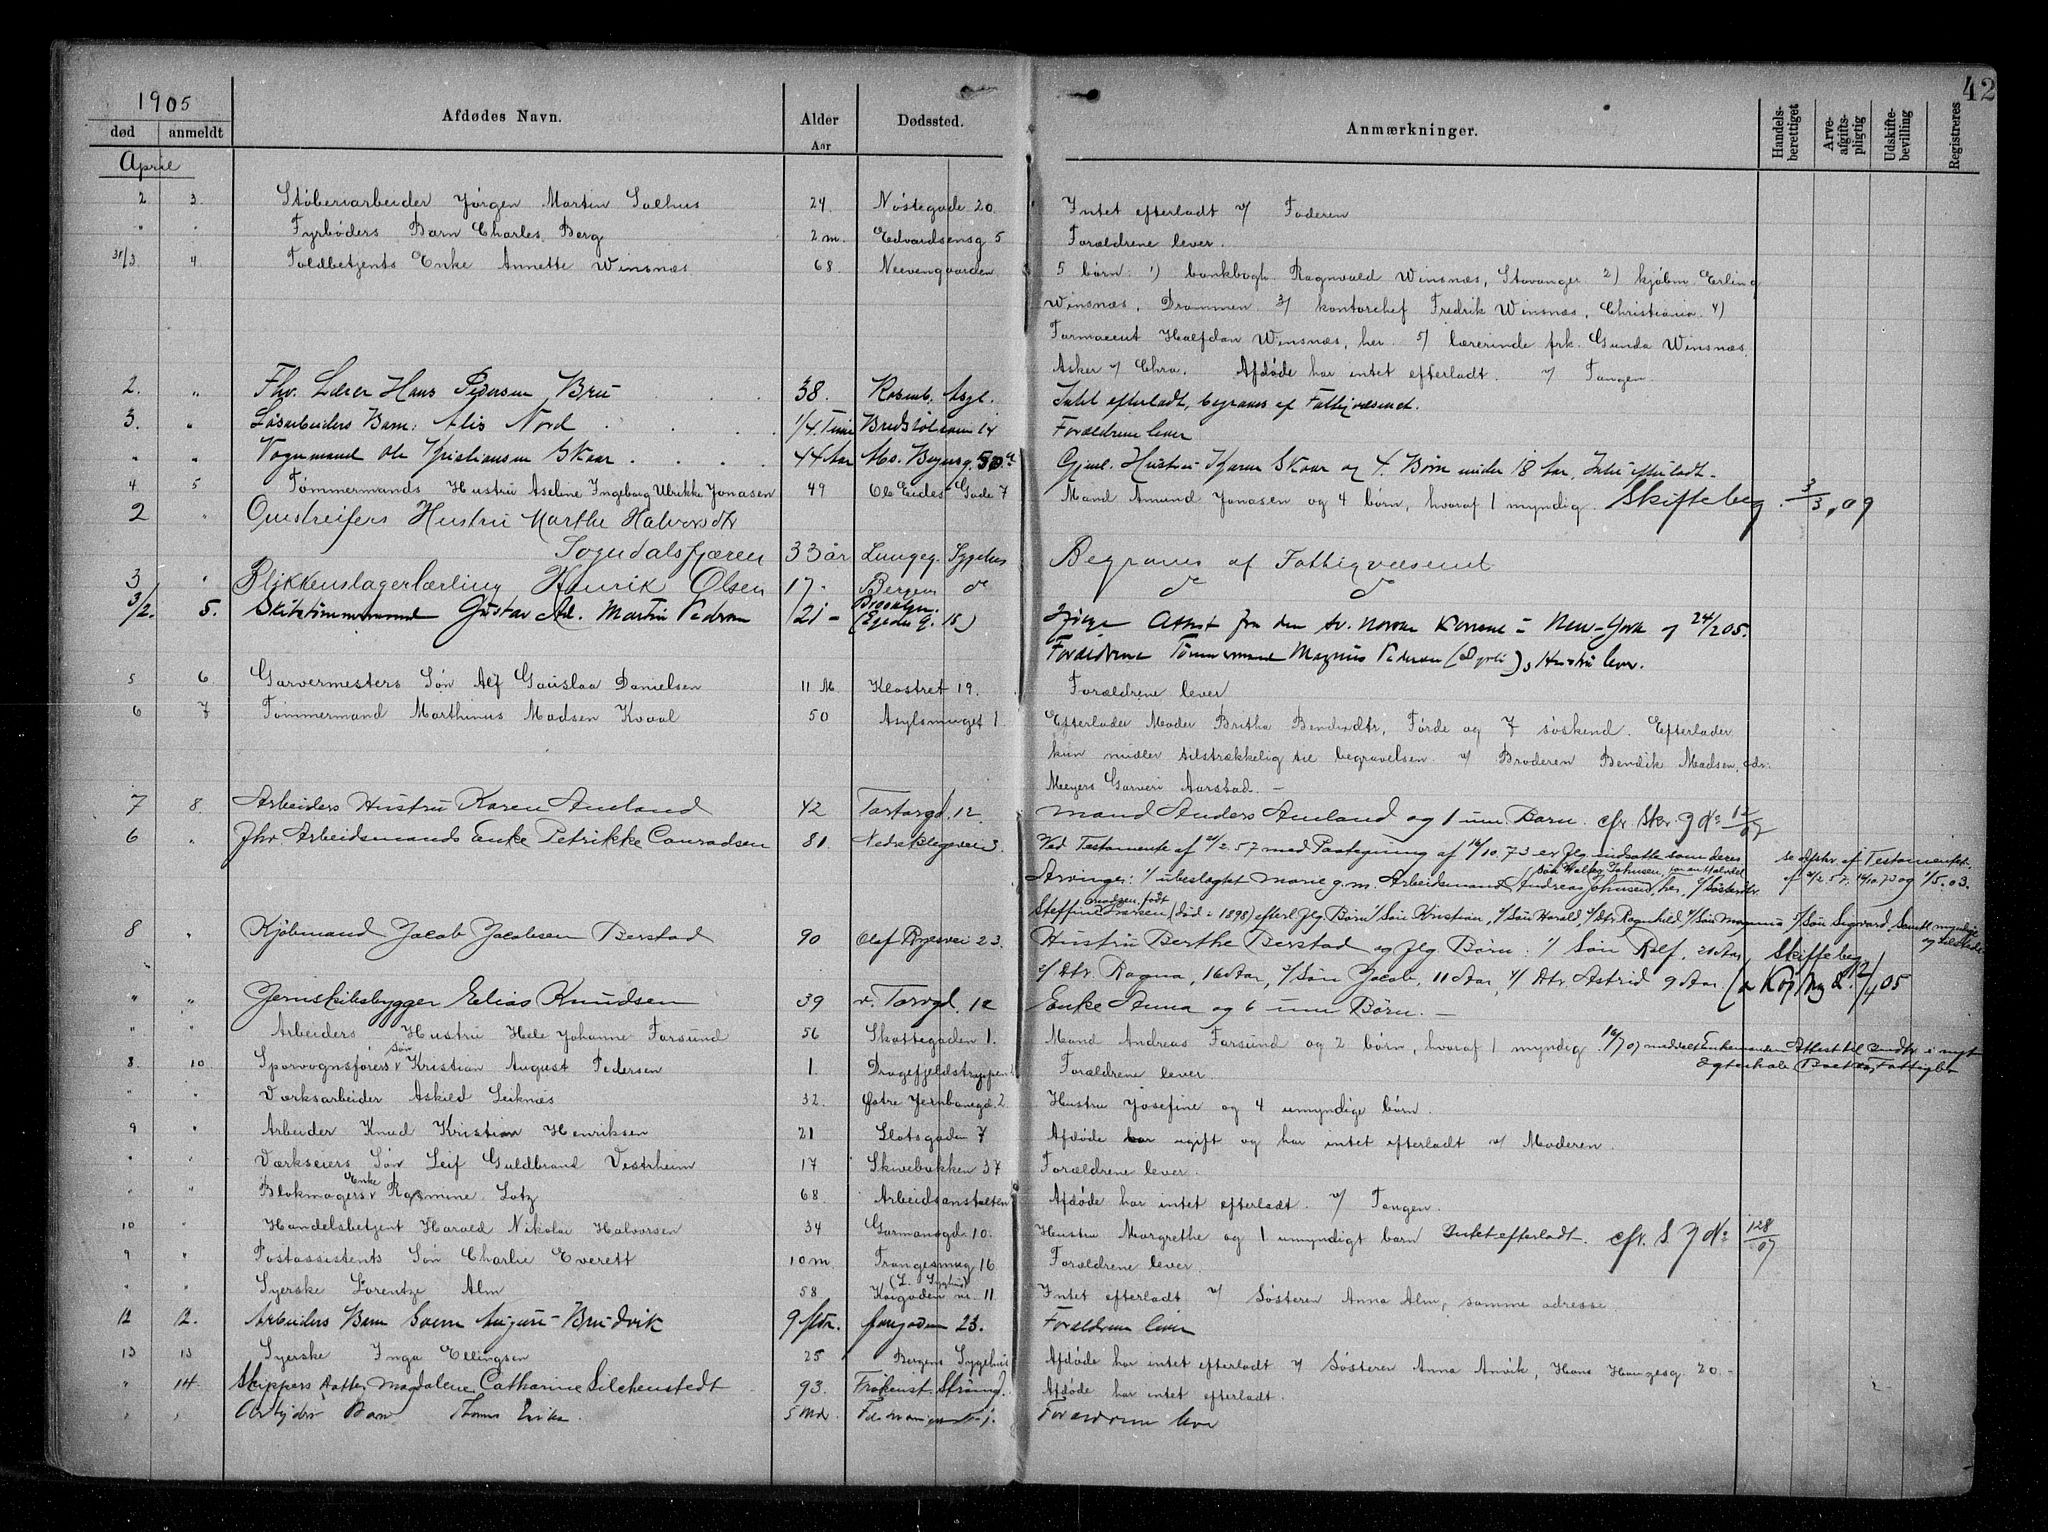 42
1905
død anmeldt Afdødes Navn. Alder Aar Dødssted. Anmærkninger. Handels-berettiget Arve-afgifts-pligtig Udskifte-bevilling Registreres
April
2 3 Støberiarbeider Jørgen Martin Salhus 24 Nøstegade 20. Intet efterladt v/ Faderen
" " Fyrbøders Barn Charles Berg 2 m. Edvardsensg 5 Forældrene lever.
31/3 4 Toldbetjents Enke Annette Winsnæs 68 Neevengaarden 5 børn: 1) bankbogh. Ragnvald Winsnæs, Stavanger 2) kjøbm Erling
Winsnæs, Drammen 3) kontorchef Fredrik Winsnæs, Christiania 4)
Farmaceut Halfdan Winsnæs, her. 5) lærerinde frk. Gunda Winsnæs,
Asker v/ Chra. Afdøde har intet efterladt. v/ Tangen
2. " Fhv. Lærer Hans Pedersen Bru 38. Rosenb. Asyl. Intet efterladt, begraves af Fattigvæsenet.
3. " Løsarbeiders Barn: Alis Nord 1/4 Time Bredstølen 14 Forældrene lever
" " Vognmand Ole Kristiansen Skaar 44 Aar Abs. Beyersg. 50a Gjenl. Hustru Karen Skaar og 4 Børn under 18 Aar, Intet efterladt.
4 5 Tømmermands Hustru Aseline Ingeborg Ulrikke Jonasen 49 Ole Eides Gade 7 Mand Amund Jonasen og 4 børn, hvoraf 1 myndig. Skiftebeg. 3/3, 09
2 " Omstreifers Hustru Marthe Halvorsdtr
Sogndalsfjæren 33 år Lungeg. Sygehus Begraves af Fattigvæsenet
3 " Blikkenslagerlærling Henrik Olsen 17 " Bergens do do do
3/2. 5. Skibstømmermand Gustav Ad. Martin Pedersen 21 - Brooklyn. (Egedes g. 15) Ifølge Attest fra den sv. norske Kirke i New-York af 24/2 05.
Forældrene Tømmermand Magnus Pedersen og Hustru lever.
5 6 Garvermesters Søn Alf Gauslaa Danielsen 11 M Klostret 19. Forældrene lever
6 7 Tømmermand Marthinus Madsen Kvaal 50 Asylsmuget 1. Efterlader Moder Britha Bendixdtr, Førde og 7 søskend. Efterlader
kun midler tilstrækkelig til begravelsen. v/ Broderen Bendik Madsen, adr:
Meyers Garveri Aarstad. —
7 8 Arbeiders Hustru Karen Amland 42 Tartargd. 12. Mand Anders Amland og 1 um. Barn. cfr. Skr. J No 12/07
6 " Fhv. Arbeidsmands Enke Petrikke Conradsen 81 Nedre Blegevei 3. Ved Testamente af 21/2. 57 med Paategning af 14/10. 73 er flg. indsatte som deres
se Afskr. af Testamentet af 21/2 57. 14/10.73 og 1/5. 03.
Arvinger: 1/ ubeslægtet Marie g.m. Arbeidsmand Andreas Johnsen her, 2/ Søsterdtr.
Steffine Larsen (død i 1898) efterl. flg. Børn 1/ Søn Kristian, 2/ Søn Harald, 3/ Dtr Ragnhild 4/ Søn Magnus 5/ Søn Sigvard
8 " Kjøbmand Jacob Jacobsen Berstad 90 Olaf Ryesvei 23. Hustru Berthe Berstad og flg Børn: 1/ Søn Rolf, 21 Aar, Skiftebeg
2/ Dtr. Ragna, 16 Aar, 3/ Søn Jacob, 11 Aar, 4/ Dtr. Astrid 9 Aar. 12/4 05
" " Jernskibsbygger Elias Knudsen 39 v. Torvgd. 12 Enke Anna og 6 um Børn. —
" " Arbeiders Hustru Hele Johanne Farsund 56 Skottegaden 1. Mand Andreas Farsund og 2 børn, hvoraf 1 myndig. 16/7 07 meddelt Enkemanden Attest til indtr. i nyt
Ægteskab
8 10 Sporvognsførers Søn Kristian August Pedersen 1 Dragefjeldstrappen Forældrene lever.
" " Værksarbeider Askild Leiknæs 32 Østre Jernbanegd. 2 Hustru Josefine og 4 umyndige børn.
9 " Arbeider Knud Kristian Henriksen 21 Slotsgaden 7 Afdøde var ugift og har intet efterladt v/ Moderen.
" " Værkseiers Søn Leif Guldbrand Vestrheim 17 Skivebakken 37 Forældrene lever.
" " Blokmagers Enke Rasmine Lotz 68 Arbeidsanstalten Afdøde har intet efterladt. v/ Tangen.
10 " Handelsbetjent Harald Nikolai Halvorsen 34 Garmannsgd 10. Hustru Margrethe og 1 umyndigt barn Intet efterladt. cfr. S. J No 128/07
9 " Postassistents Søn Charlie Everett 10 m Trangesmug 16 Forældrene lever.
" " Syerske Lorentze Alm 58 (L. Sygehus) Kaigaden nr. 11. Intet efterladt v/ Søsteren Anna Alm, samme adresse.
12 12. Arbeiders Barn August Brudvik 9 Mdr. 23. Forældrene lever
13 13 Syerske Inga Ellingsen 25 Bergens Sygehus Afdøde har intet efterladt v/ Søsteren Anna Anvik, Hans Haugesg 20 -
" 14. Skippers Datter Magdalene Catharine Silchenstedt 93. Frøkenst. Strømgd. Afdøde har intet efterladt.
" " Arbeiders Barn Thomas 5 Mdr Forældrene lever